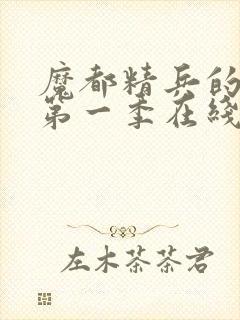 魔都精兵的
第一季在线
左木茶茶君